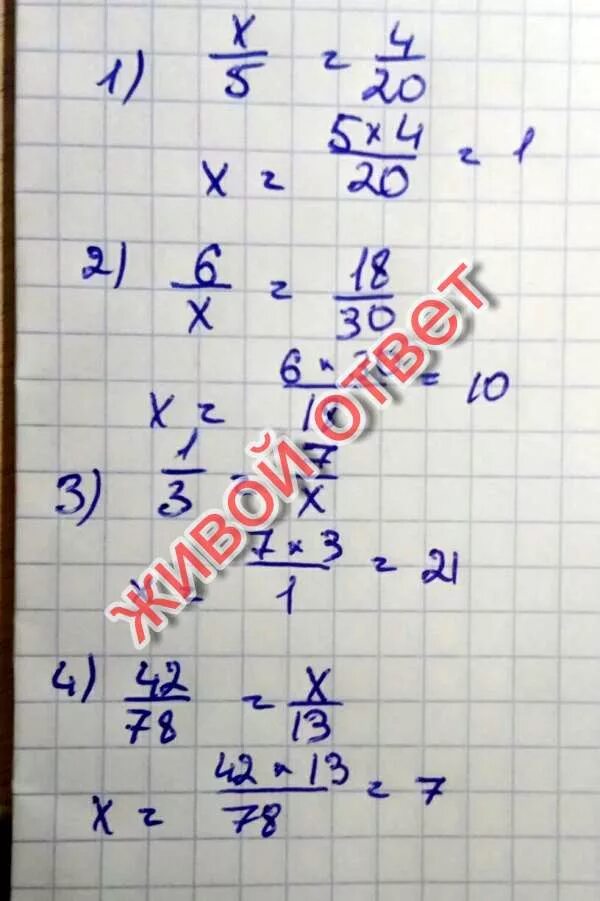 1) x/5 = 4/20
x = 5 × 4/20 = 1
2) 6/x = 18/30
x = 6 × /18 = 10
3) 1/3 = 7/x
x = 7 × 3/1 = 21
4) 42/78 = x/13
x = 42 × 13/78 = 7
ЖИВОЙ ОТВЕТ